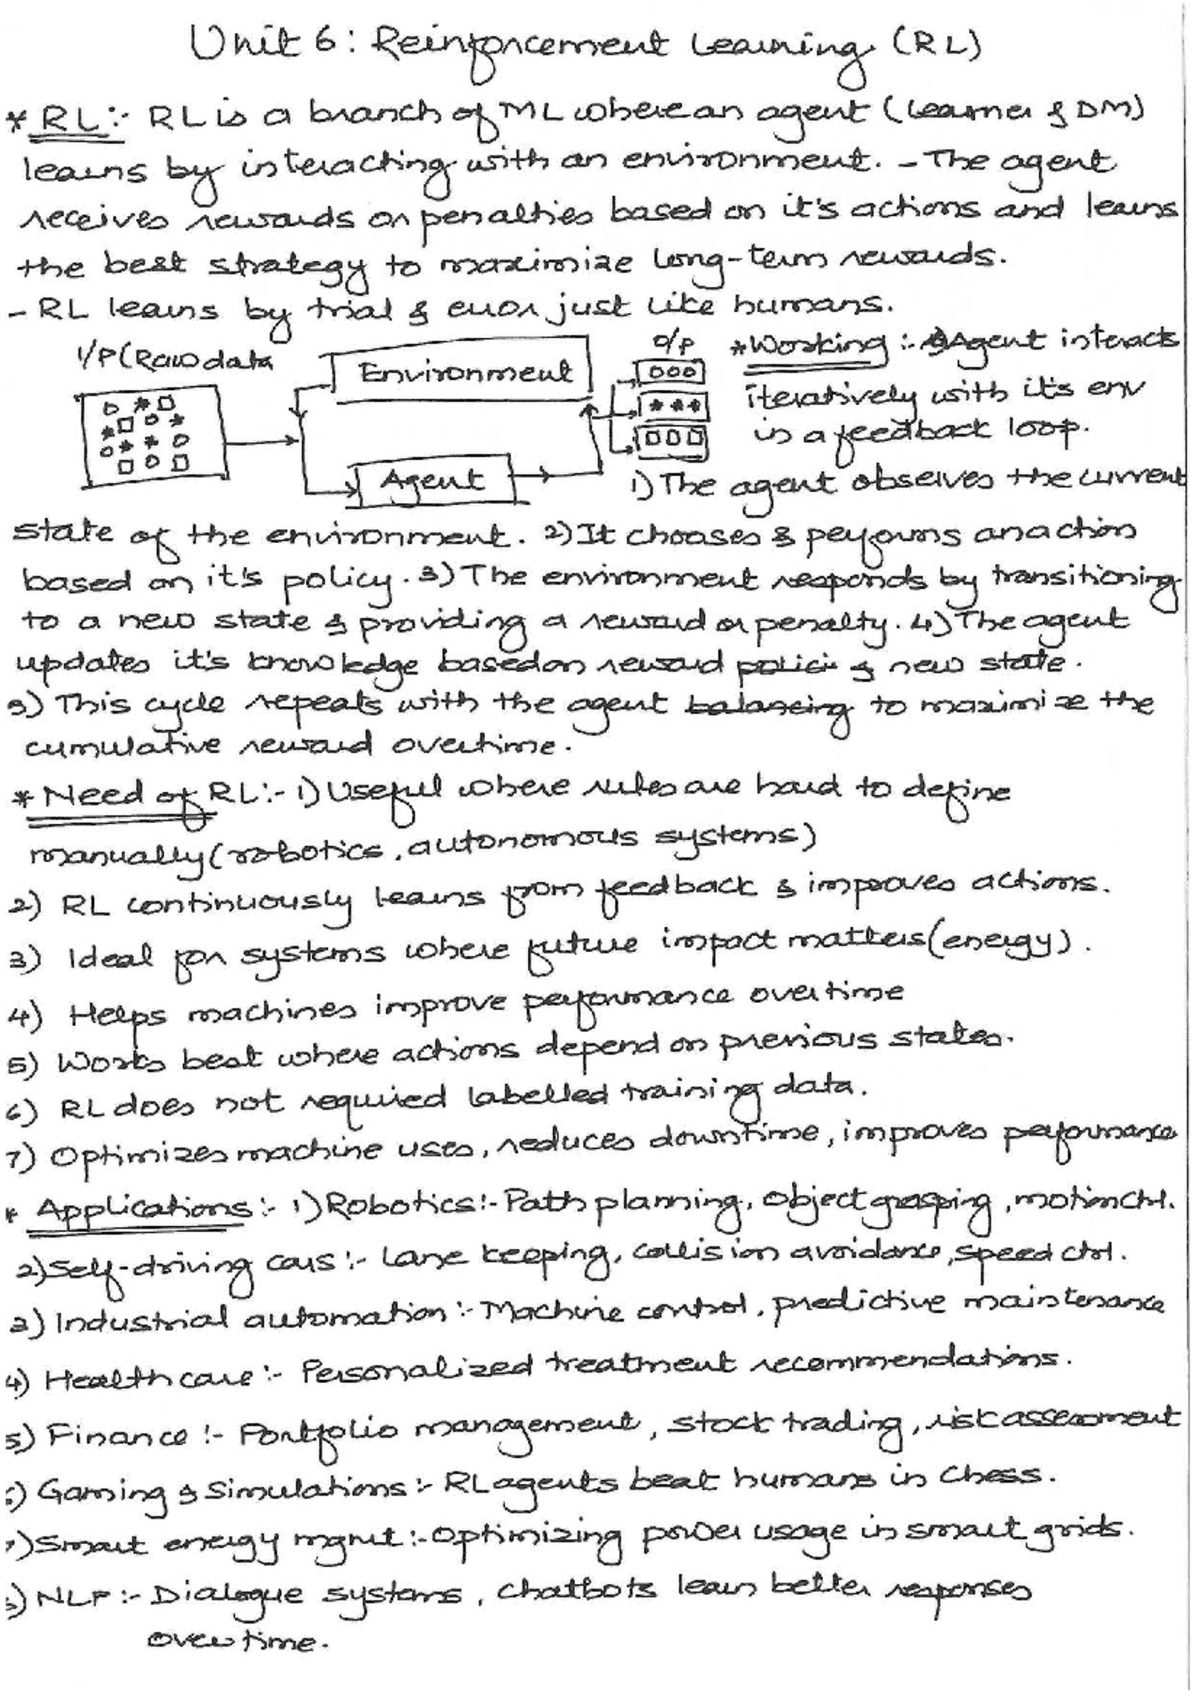 Unit 6: Reinforcement Learning (RL)
* RL:- RL is a branch of ML where an agent (learner & DM)
learns by interacting with an environment. - The agent
receives rewards or penalties based on it's actions and learns
the best strategy to maximize long-term rewards.
- RL learns by trial & error just like humans.
I/P (Raw data
Environment
Agent
O/P
* Working :- Agent interacts
iteratively with it's env
in a feedback loop.
1) The agent observes the current
state of the environment. 2) It chooses & performs an action
based on it's policy. 3) The environment responds by transitioning
to a new state & providing a reward or penalty. 4) The agent
updates it's knowledge based on reward & new state.
5) This cycle repeats with the agent to maximize the
cumulative reward overtime.
* Need of RL:- 1) Useful where rules are hard to define
manually (robotics, autonomous systems)
2) RL continuously learns from feedback & improves actions.
3) Ideal for systems where future impact matters (energy).
4) Helps machines improve performance overtime
5) Works best where actions depend on previous states.
6) RL does not required labelled training data.
7) Optimizes machine uses, reduces downtime, improves performance
* Applications:- 1) Robotics:- Path planning, Object grasping, motion ctrl.
2) Self-driving cars :- Lane keeping, collision avoidance, speed ctrl.
3) Industrial automation :- Machine control, predictive maintenance
4) Healthcare :- Personalized treatment recommendations.
5) Finance :- Portfolio management, stock trading, risk assessment
6) Gaming & Simulations :- RL agents beat humans in Chess.
7) Smart energy mgmt :- Optimizing power usage in smart grids.
8) NLP :- Dialogue systems, chatbots learn better responses
overtime.